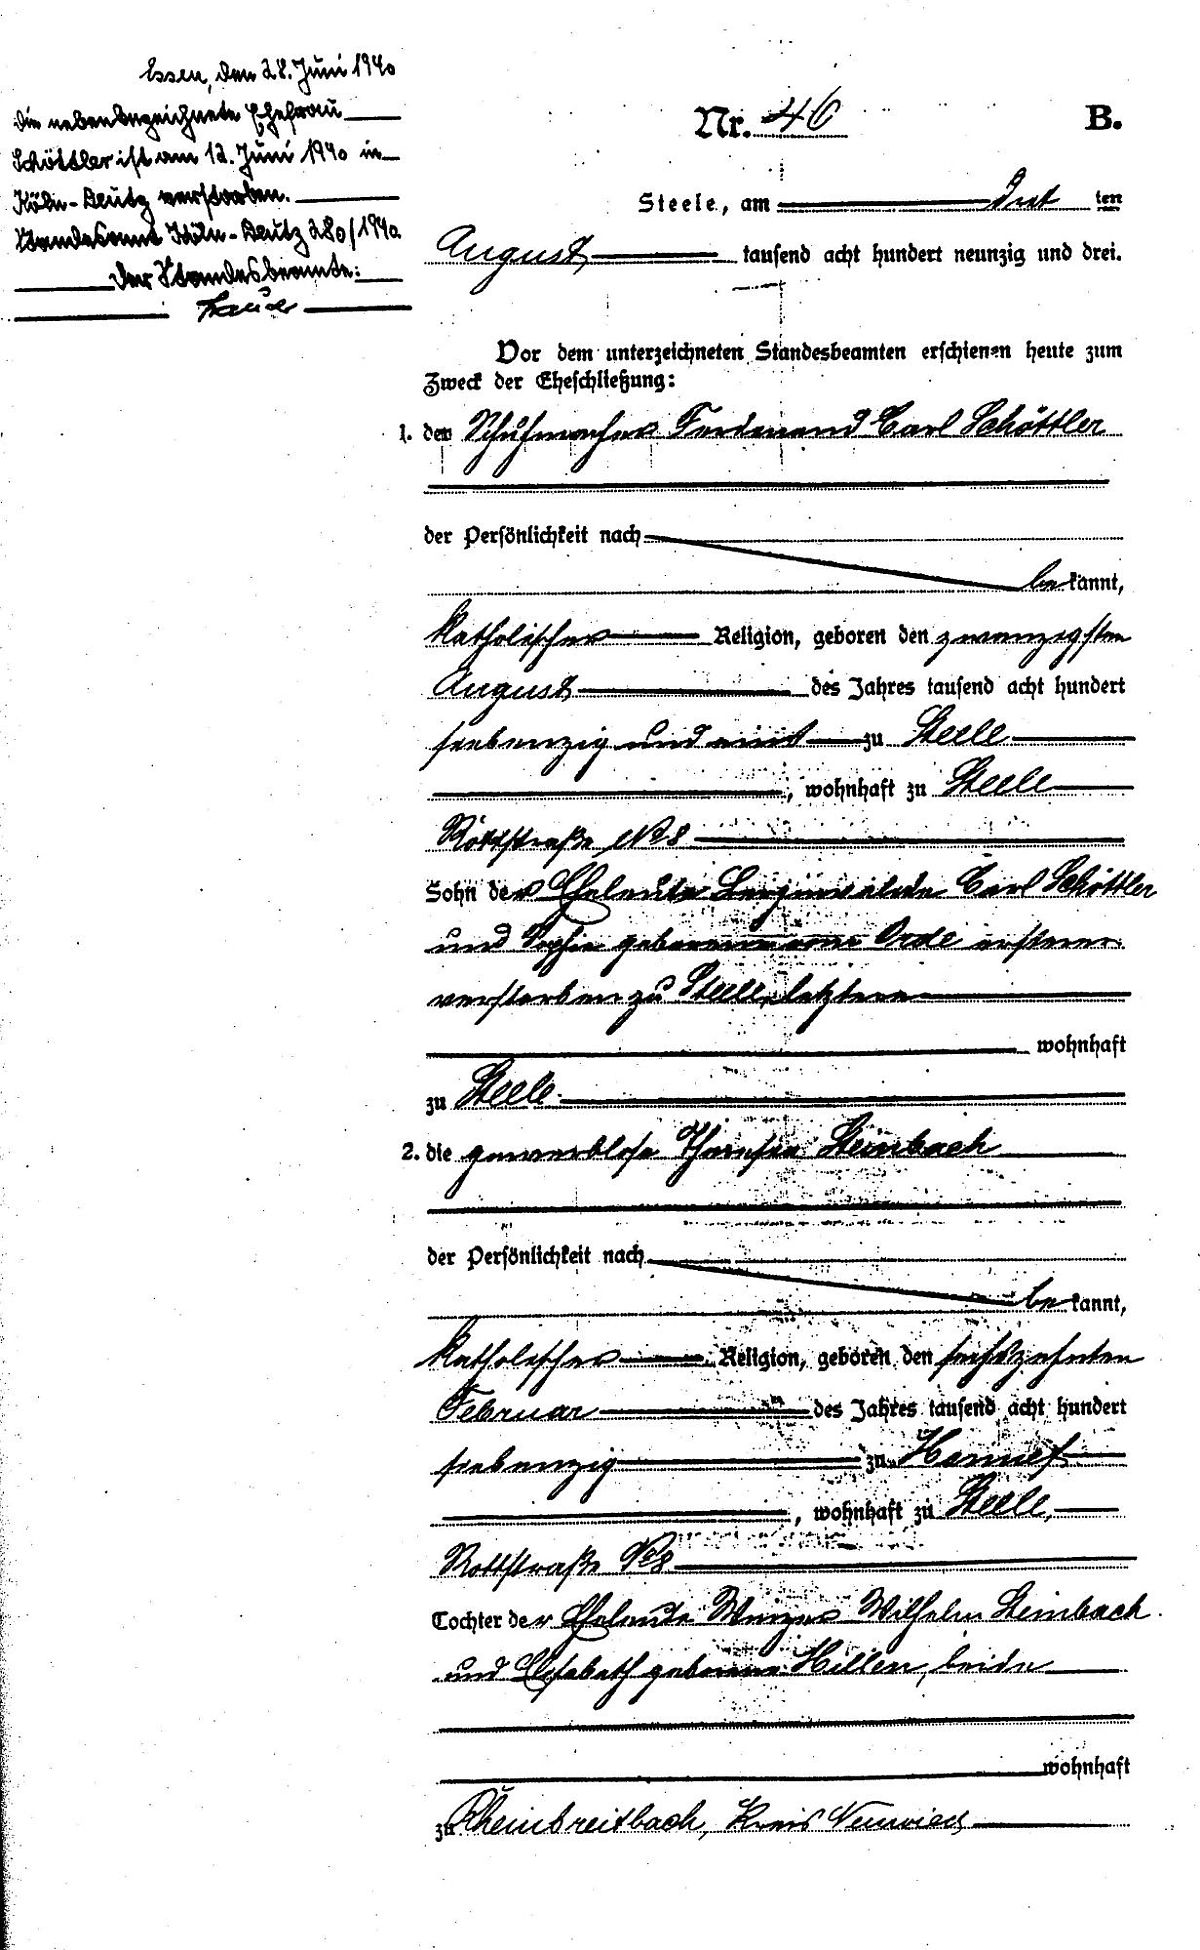 Essen, den 28. Juni 1940
Die nebenbezeichnete Ehefrau
Schöttler ist am 12. Juni 1940 in
Köln-Deutz verstorben.
Standesamt Köln-Deutz 280/1940.
Der Standesbeamte:
Nr. 46
B.
Steele, am drit ten
August tausend acht hundert neunzig und drei.
Vor dem unterzeichneten Standesbeamten erschienen heute zum
Zweck der Eheschließung:
1. der Schuhmacher Ferdinand Carl Schöttler
der Persönlichkeit nach
be kannt,
katholischer Religion, geboren den zwanzigsten
August des Jahres tausend acht hundert
siebenzig und eins zu Steele
, wohnhaft zu Steele
Rottstraße No 8
Sohn der Eheleute Berginvalide Carl Schöttler
und Sophie geborene vom Orde ersterer
verstorben zu Steele, letztere
wohnhaft
zu Steele
2. die gewerblose Theresia Steinbach
der Persönlichkeit nach
be kannt,
katholischer Religion, geboren den sechszehnten
Februar des Jahres tausend acht hundert
siebenzig zu Honnef
, wohnhaft zu Steele,
Rottstraße No 8
Tochter der Eheleute Winzer Wilhelm Steinbach
und Elisabeth geborene Hillen, beide
wohnhaft
zu Rheinbreitbach, Kreis Neuwied